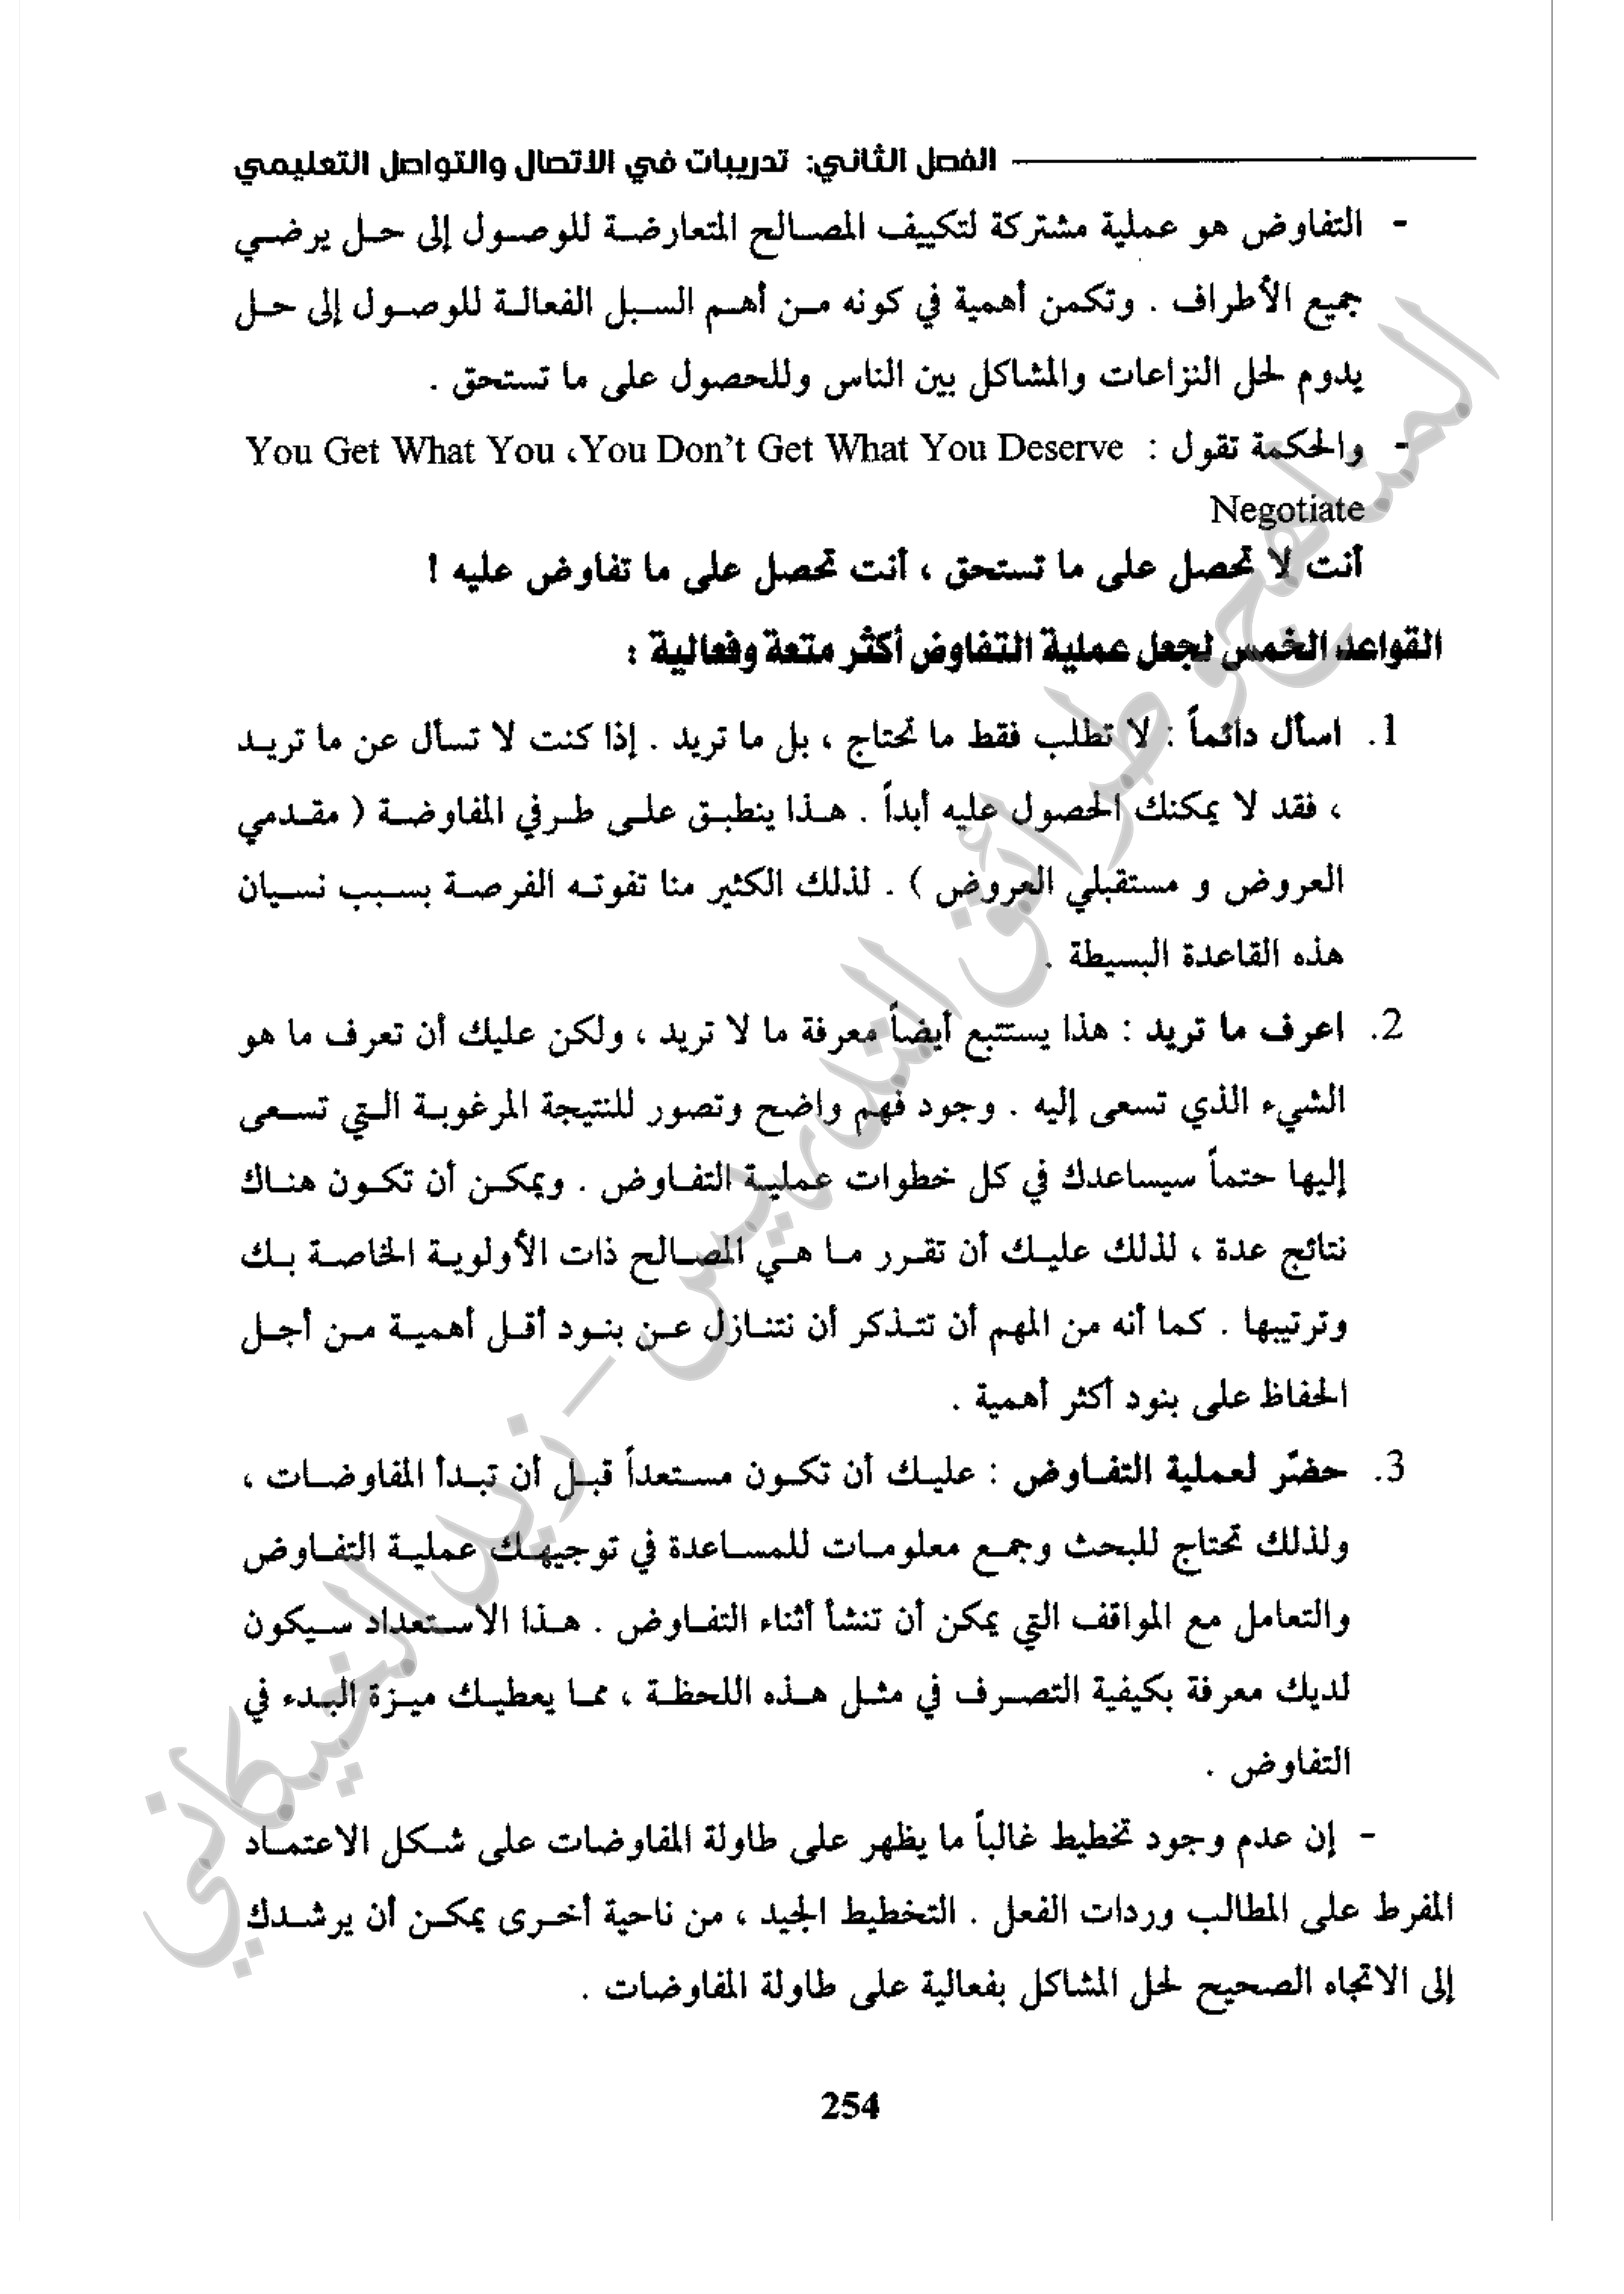 الفصل الثاني: تدريبات في الاتصال والتواصل التعليمي
- التفاوض هو عملية مشتركة لتكييف المصالح المتعارضة للوصول إلى حل يرضي
جميع الأطراف . وتكمن أهمية في كونه من أهم السبل الفعالة للوصول إلى حل
يدوم لحل النزاعات والمشاكل بين الناس وللحصول على ما تستحق .
- والحكمة تقول : You Get What You ،You Don't Get What You Deserve
Negotiate
أنت لا تحصل على ما تستحق ، أنت تحصل على ما تفاوض عليه !
القواعد الخمس لجعل عملية التفاوض أكثر متعة وفعالية :
1. اسأل دائماً : لا تطلب فقط ما تحتاج ، بل ما تريد . إذا كنت لا تسأل عن ما تريد
، فقد لا يمكنك الحصول عليه أبداً . هذا ينطبق على طرفي المفاوضة ( مقدمي
العروض و مستقبلي العروض ) . لذلك الكثير منا تفوته الفرصة بسبب نسيان
هذه القاعدة البسيطة .
2. اعرف ما تريد : هذا يستتبع أيضاً معرفة ما لا تريد ، ولكن عليك أن تعرف ما هو
الشيء الذي تسعى إليه . وجود فهم واضح وتصور للنتيجة المرغوبة التي تسعى
إليها حتماً سيساعدك في كل خطوات عملية التفاوض . ويمكن أن تكون هناك
نتائج عدة ، لذلك عليك أن تقرر ما هي المصالح ذات الأولوية الخاصة بك
وترتيبها . كما أنه من المهم أن تتذكر أن نتنازل عن بنود أقل أهمية من أجل
الحفاظ على بنود أكثر أهمية .
3. حضّر لعملية التفاوض : عليك أن تكون مستعداً قبل أن تبدأ المفاوضات ،
ولذلك تحتاج للبحث وجمع معلومات للمساعدة في توجيهك عملية التفاوض
والتعامل مع المواقف التي يمكن أن تنشأ أثناء التفاوض . هذا الاستعداد سيكون
لديك معرفة بكيفية التصرف في مثل هذه اللحظة ، مما يعطيك ميزة البدء في
التفاوض .
- إن عدم وجود تخطيط غالباً ما يظهر على طاولة المفاوضات على شكل الاعتماد
المفرط على المطالب وردات الفعل . التخطيط الجيد ، من ناحية أخرى يمكن أن يرشدك
إلى الاتجاه الصحيح لحل المشاكل بفعالية على طاولة المفاوضات .
254
المناهج وطرائق التدريس - زيد الخيكاني